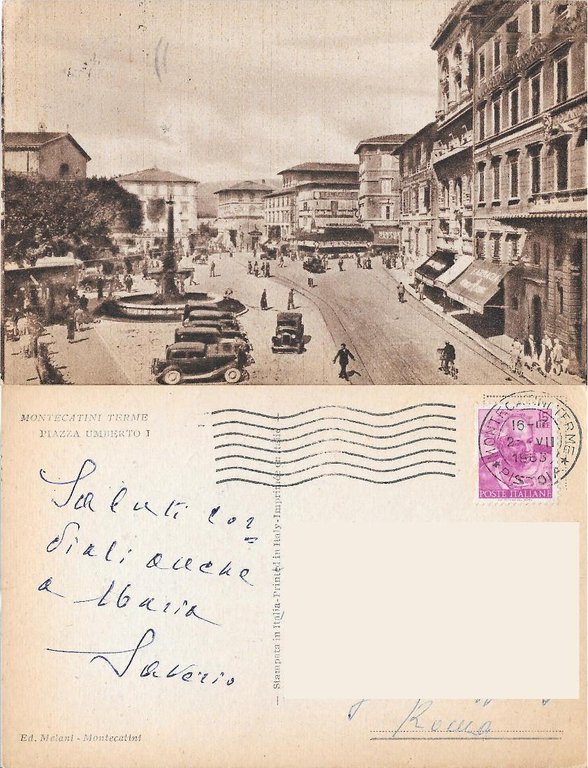 MONTECATINI TERME
PIAZZA UMBERTO I
MONTECATINI TERME
16-
2- VII
1963
PISTOIA
15
POSTE ITALIANE
Saluti cor=
diali anche
a Maria
Saverio
Stampata in Italia-Printed in Italy-Imprimé en Italie
Roma
Ed. Melani - Montecatini